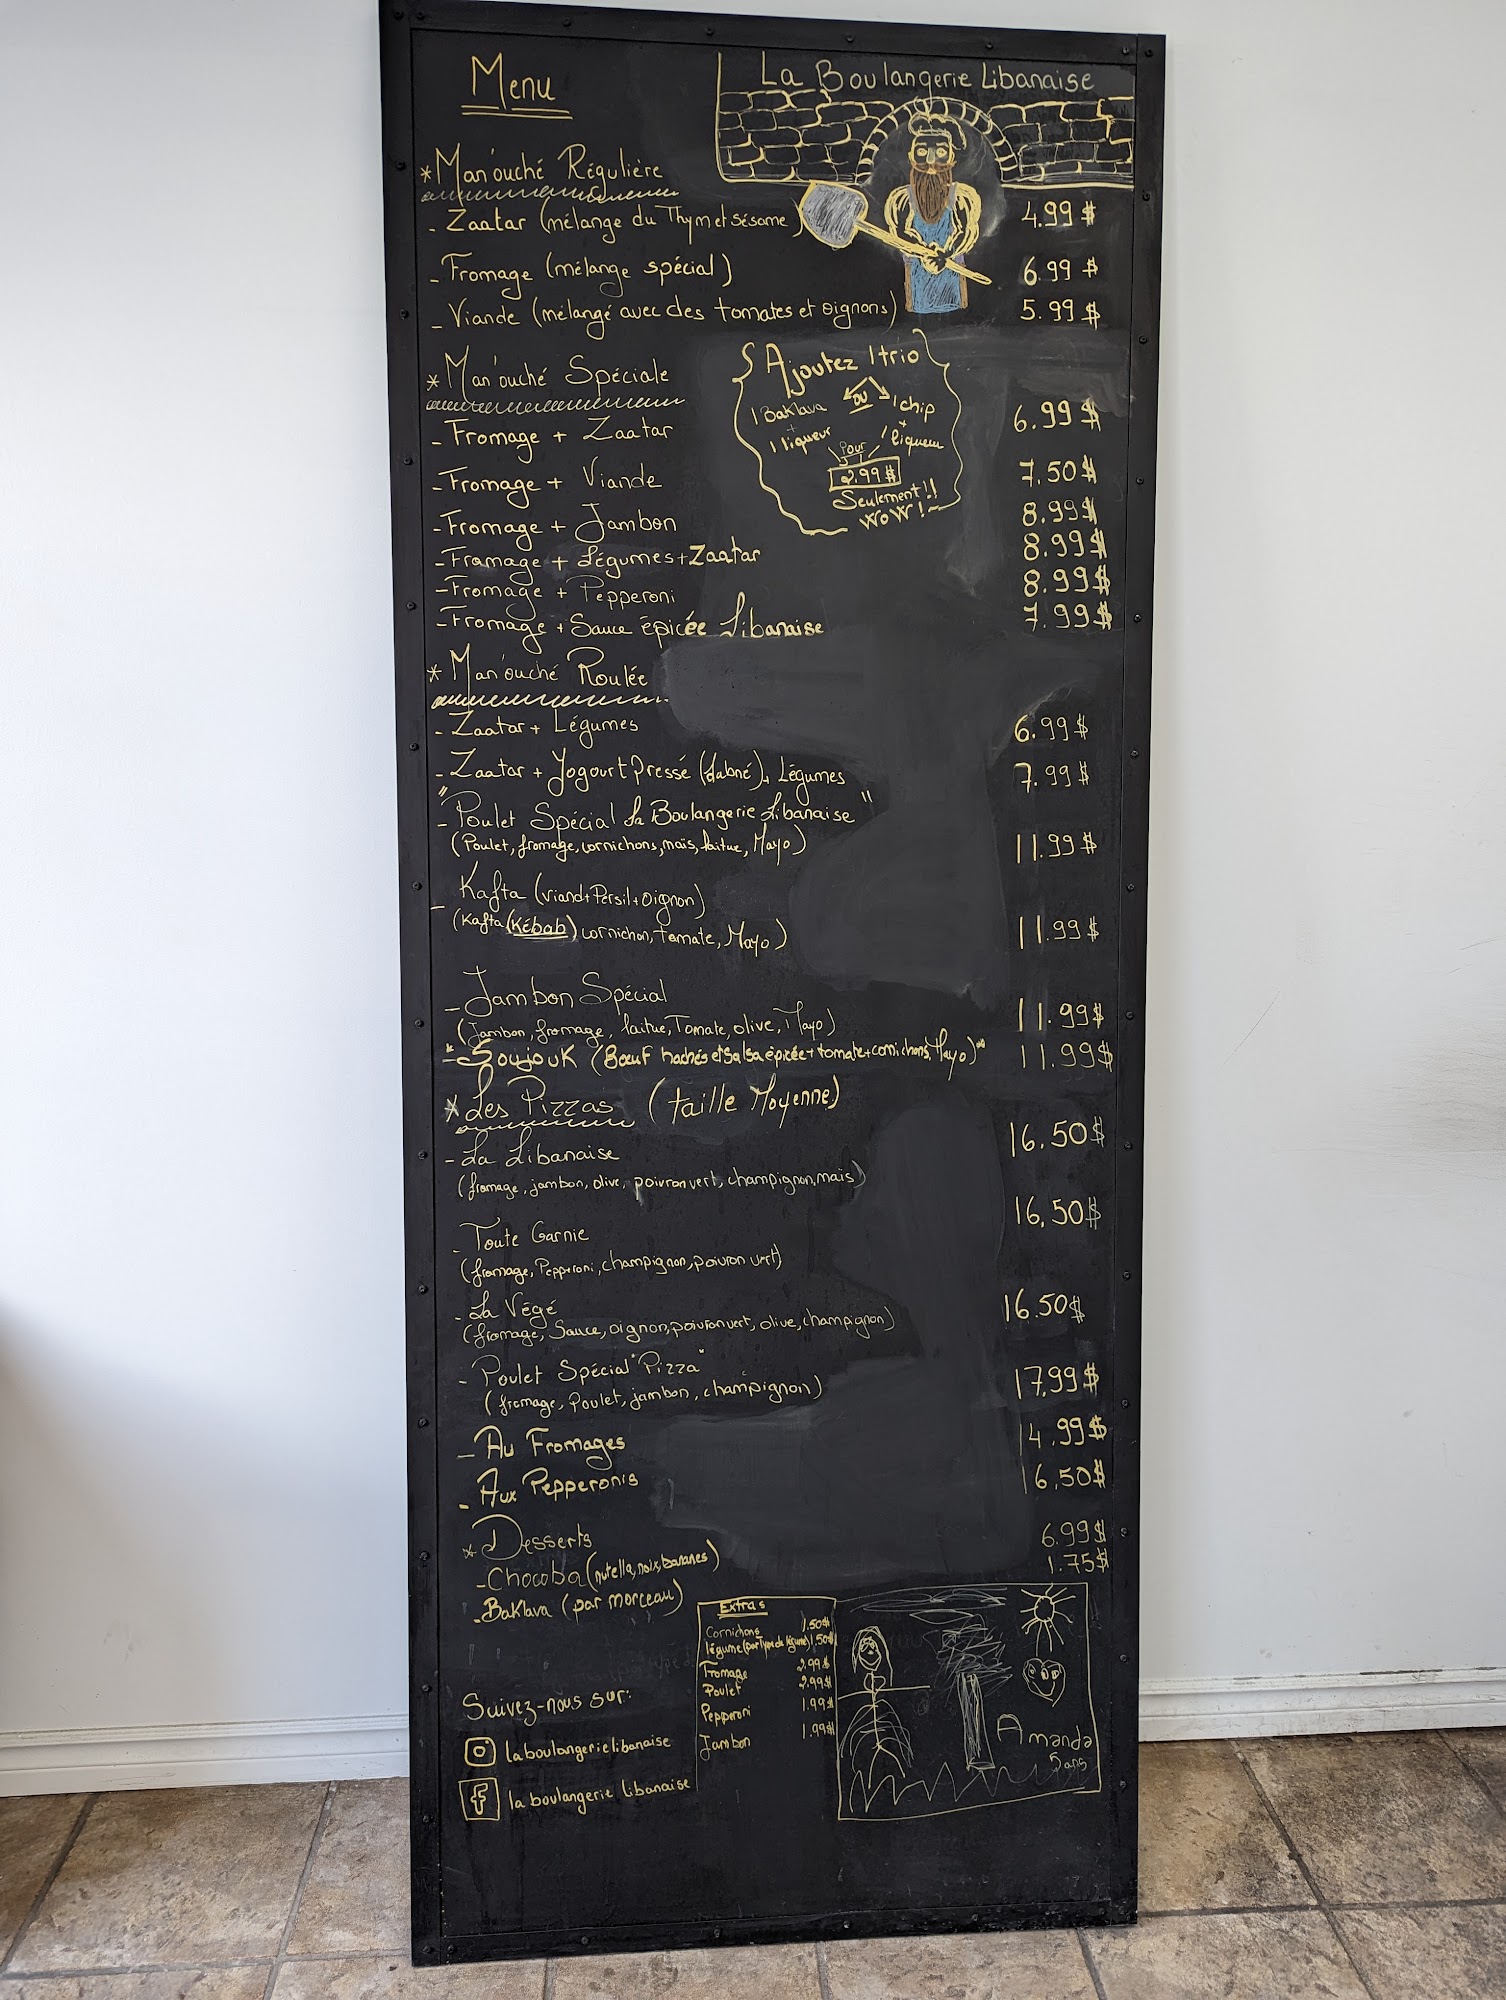 Menu
La Boulangerie Libanaise
* Man'ouché Régulière
- Zaatar (mélange du Thym et sésame) 4.99 $
- Fromage (mélange spécial) 6.99 $
- Viande (mélangé avec des tomates et oignons) 5.99 $
* Man'ouché Spéciale
Ajoutez 1 trio
1 Baklava OU 1 chip
+ +
1 liqueur 1 liqueur
Pour
2.99 $
Seulement!!
WoW!
- Fromage + Zaatar 6.99 $
- Fromage + Viande 7.50 $
- Fromage + Jambon 8.99 $
- Framage + Légumes + Zaatar 8.99 $
- Fromage + Pepperoni 8.99 $
- Fromage + Sauce épicée Libanaise 7.99 $
* Man'ouché Roulée
- Zaatar + Légumes 6.99 $
- Zaatar + Yogourt Pressé (Labné) + Légumes 7.99 $
- "Poulet Spécial La Boulangerie Libanaise"
(Poulet, fromage, cornichons, maïs, laitue, Mayo) 11.99 $
- Kafta (viand + Persil + Oignon)
(Kafta (Kébab) cornichon, tomate, Mayo) 11.99 $
- Jambon Spécial
(Jambon, fromage, laitue, Tomate, olive, Mayo) 11.99 $
- "Soujouk (Bœuf hachés et Salsa épicée + tomate + cornichons, Mayo)" 11.99 $
* Les Pizzas (taille Moyenne)
- La Libanaise 16.50 $
(fromage, jambon, olive, poivron vert, champignon, maïs)
- Toute Garnie 16,50 $
(fromage, Pepperoni, champignon, poivron vert)
- La Végé 16.50 $
(fromage, Sauce, oignon, poivron vert, olive, champignon)
- Poulet Spécial "Pizza" 17,99 $
(fromage, Poulet, jambon, champignon)
- Au Fromages 14.99 $
- Aux Pepperonis 16,50 $
* Desserts
- Chocoba (nutella, noix, bananes) 6.99 $
- Baklava (par morceau) 1.75 $
Extras
Cornichons 1.50 $
légume (par Type de légume) 1.50 $
Fromage 2.99 $
Poulet 2.99 $
Pepperoni 1.99 $
Jambon 1.99 $
Suivez-nous sur:
laboulangerielibanaise
f la boulangerie libanaise
Amanda
5 ans